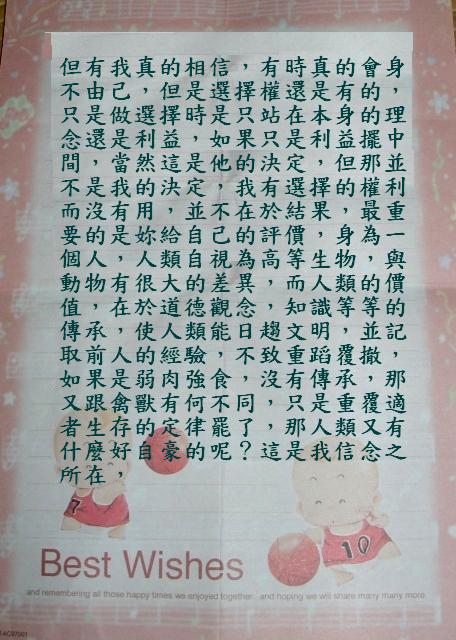 但有我真的相信，有時真的會身
不由己，但是選擇權還是有的，
只是做選擇時，是只站在本身的理
念還是利益，如果只是利益擺中
間，當然這是他的決定，但那並
不是我的決定，我有選擇的權利
而沒有用，並不在於結果，最重
要的是，妳給自己的評價，身為一
個人，人類自視為高等生物，與
動物，有很大的差異，而人類的價
值，在於道德觀念，知識等等的
傳承，使人類能日趨文明，並記
取前人的經驗，不致重蹈覆撤，
如果是弱肉強食，沒有傳承，那
又跟禽獸有何不同，只是重覆適
者生存的定律罷了，那人類又有
什麼好自豪的呢？這是我信念之
所在，
7
10
Best Wishes
and remembering all those happy times we enjoyed together and hoping we will share many many more